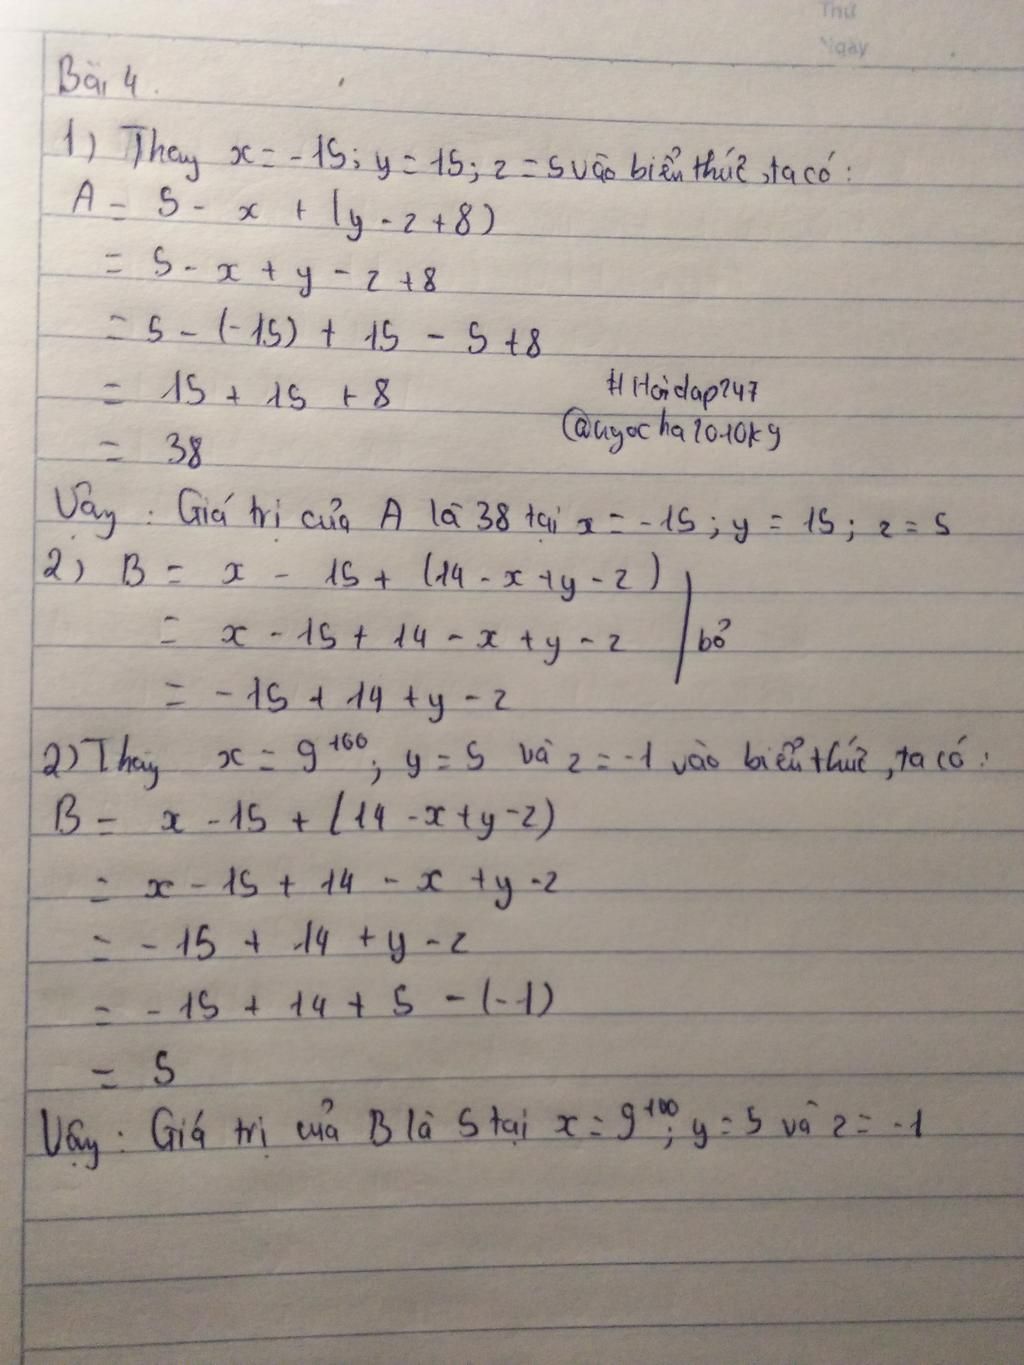 Thứ
Ngày
Bài 4.
1) Thay x = -15; y = 15; z = 5 vào biểu thức, ta có:
A = 5 - x + (y - z + 8)
= 5 - x + y - z + 8
= 5 - (-15) + 15 - 5 + 8
= 15 + 15 + 8
= 38
#Hoidap247
@ngocha2010kg
Vậy: Giá trị của A là 38 tại x = -15; y = 15; z = 5
2) B = x - 15 + (14 - x + y - z)
= x - 15 + 14 - x + y - z
bỏ
= -15 + 14 + y - z
2) Thay x = 9¹⁰⁰; y = 5 và z = -1 vào biểu thức, ta có:
B = x - 15 + (14 - x + y - z)
= x - 15 + 14 - x + y - z
= -15 + 14 + y - z
= -15 + 14 + 5 - (-1)
= 5
Vậy: Giá trị của B là 5 tại x = 9¹⁰⁰; y = 5 và z = -1